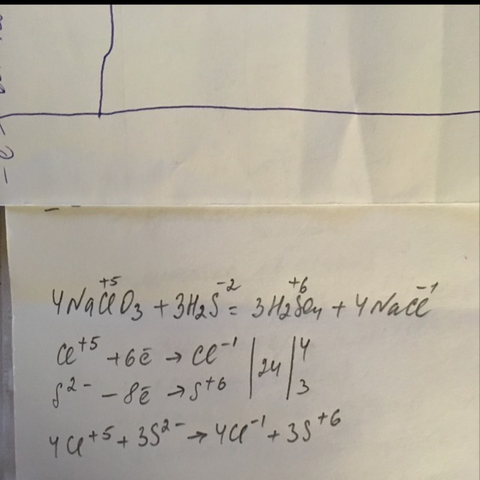 4NaCl⁺⁵O₃ + 3H₂S⁻² = 3H₂S⁺⁶O₄ + 4NaCl⁻¹
Cl⁺⁵ + 6ē → Cl⁻¹ | 24 | 4
S²⁻ - 8ē → S⁺⁶ | 3
4Cl⁺⁵ + 3S²⁻ → 4Cl⁻¹ + 3S⁺⁶